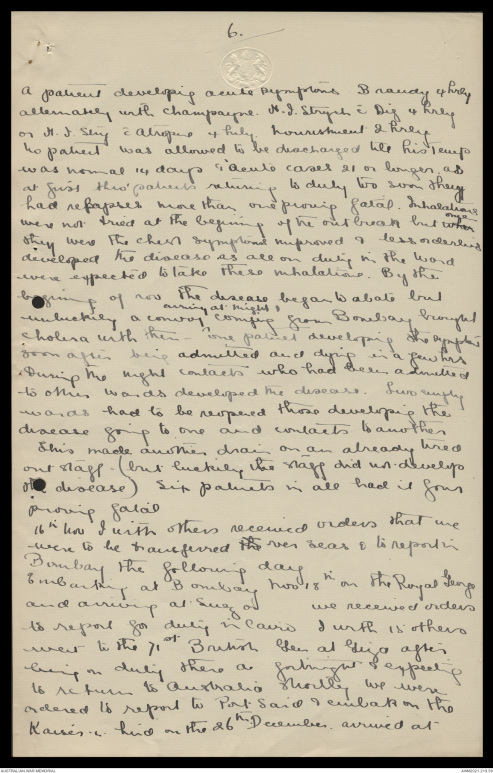 6.
A patient developing acute symptoms Brandy 4 hrly
alternately with champagne. H.I. Strych c̄ Dig 4 hrly
or H.I. Stry c̄ Atropine 4 hrly. nourishment 2 hrly
No patient was allowed to be discharged till his temp
was normal 14 days & acute cases 21 or longer, as
at first thro' patients returning to duty too soon they
had relapses more than one proving fatal. Inhalations
were not tried at the begining of the outbreak but once when
they were the chest symptoms improved & less orderlies
developed the disease as all on duty in the ward
were expected to take these inhalations. By the
begining of nov the disease began to abate but
unluckily a convoy arriving at night, coming from Bombay brought
cholera with them - one patient developing the symptoms
soon after being admitted and dying in a few hrs
During the night contacts who had been admitted
to other wards developed the disease. Two empty
wards had to be reopened those developing the
disease going to one and contacts to another
This made another drain on an already tired
out staff - (but luckily the staff did not develop
the disease) Six patients in all had it four
proving fatal
16th Nov I with others received orders that we
were to be transferred over seas & to report in
Bombay the following day
Embarking at Bombay Nov 18th on the Royal George
and arriving at Suez on we received orders
to report for duty in Cairo I with 15 others
went to the 71st British Gen at Giza after
being on duty there a fortnight & expecting
to return to Australia shortly we were
ordered to report to Port Said & embark on the
Kaiser-i-hind on the 26th December. arrived at
AUSTRALIAN WAR MEMORIAL